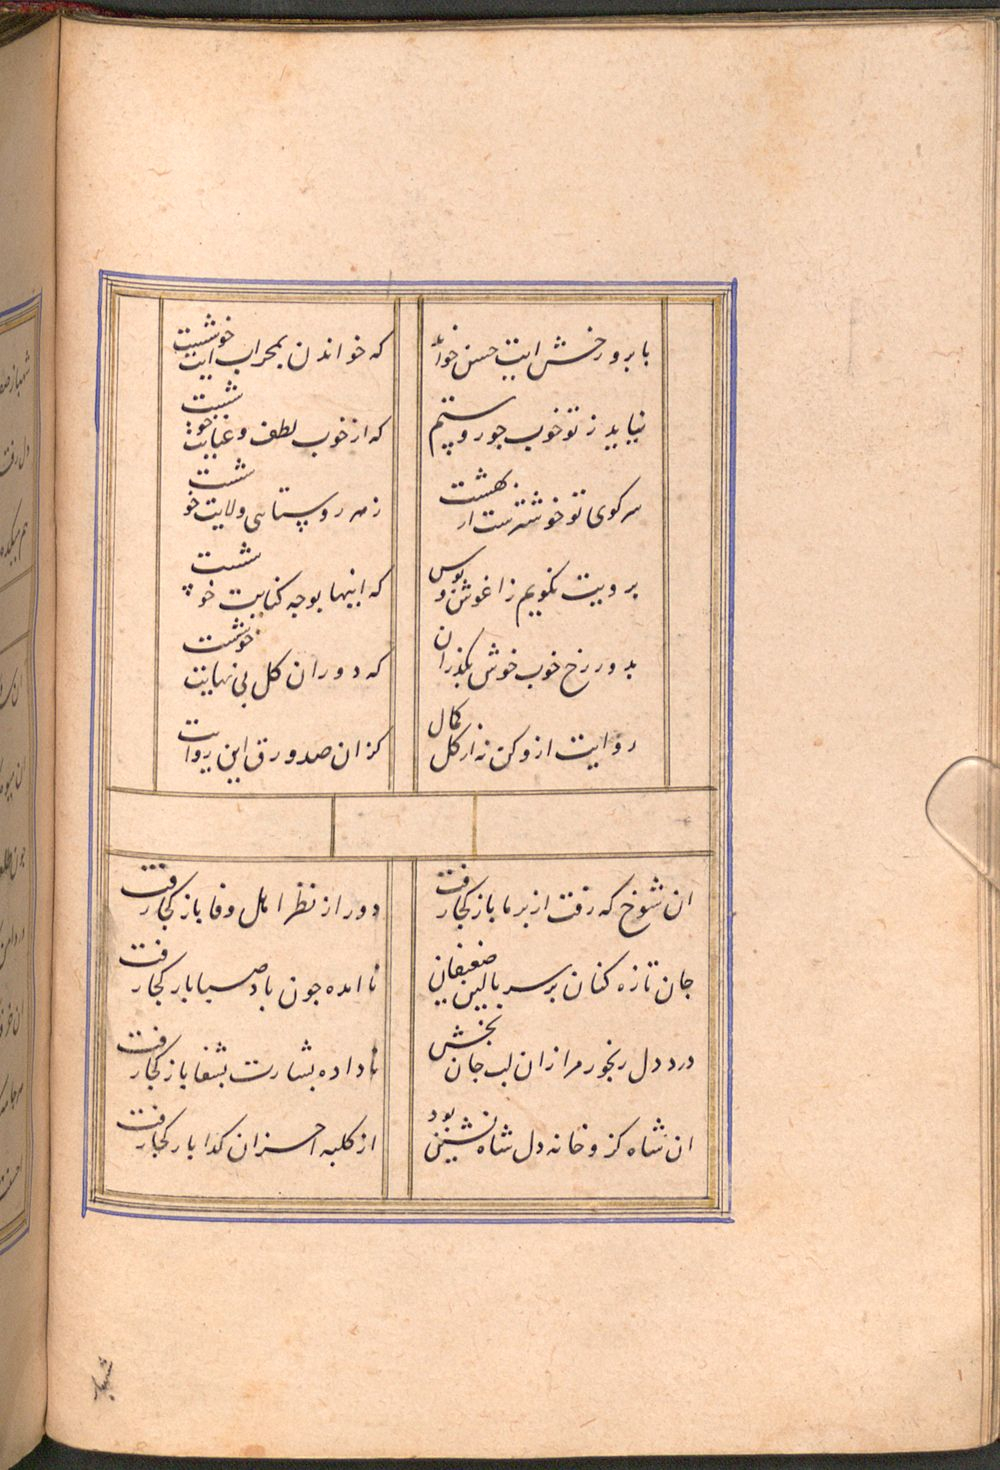 با برو رخش ایت حسن خوان
که خواندن بمحراب ایت خوشست
نیاید ز تو خوب جور و ستم
که از خوب لطف و عنایت خوشست
سر کوی تو خوشترست از بهشت
زهر روستایی ولایت خوشست
برویت نکویم ز اغوش و بوس
که اینها بوجه کنایت خوشست
بدور رخ خوب خوش بکذران
که دوران کل بی نهایت خوشست
روایت ازو کن نه از کل کمال
کزان صد ورق این روایت
ان شوخ که رفت از بر ما باز کجا رفت
دور از نظر اهل وفا باز کجا رفت
جان تازه کنان بر سر بالین ضعیفان
نا امده جون باد صبا باز کجا رفت
درد دل رنجور مرا زان لب جان بخش
نا داده بشارت بشفا باز کجا رفت
ان شاه کزو خانه دل شاه نشین بود
از کلبه احزان کدا باز کجا رفت